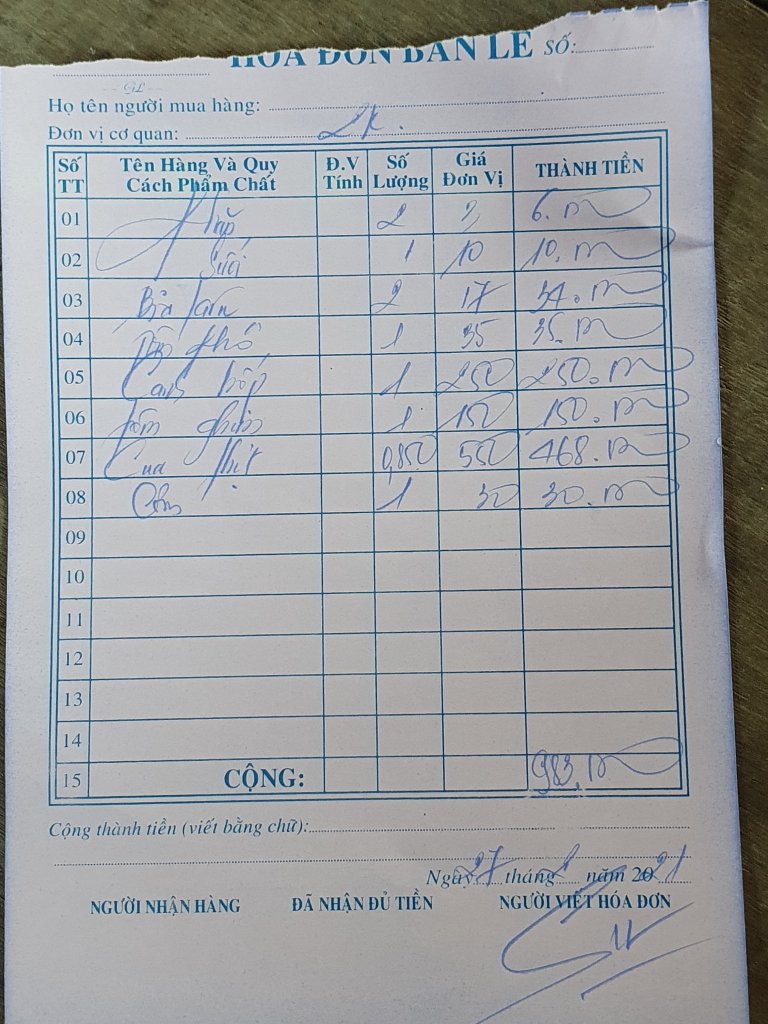 HÓA ĐƠN BÁN LẺ SỐ:
Họ tên người mua hàng:
Đơn vị cơ quan: 2K.
Số TT Tên Hàng Và Quy Cách Phẩm Chất Đ.V Tính Số Lượng Giá Đơn Vị THÀNH TIỀN
01 2 6.
02 Suối 1 10 10.
03 Bò 2 17 34.
04 1 35 35.
05 Canh 1 250 250.
06 Tôm 1 150 150.
07 Cua thịt 0,850 550 468.
08 Cơm 1 30 30.
09
10
11
12
13
14
15 CỘNG: 983.
Cộng thành tiền (viết bằng chữ):
Ngày 27 tháng năm 2021
NGƯỜI NHẬN HÀNG ĐÃ NHẬN ĐỦ TIỀN NGƯỜI VIẾT HÓA ĐƠN